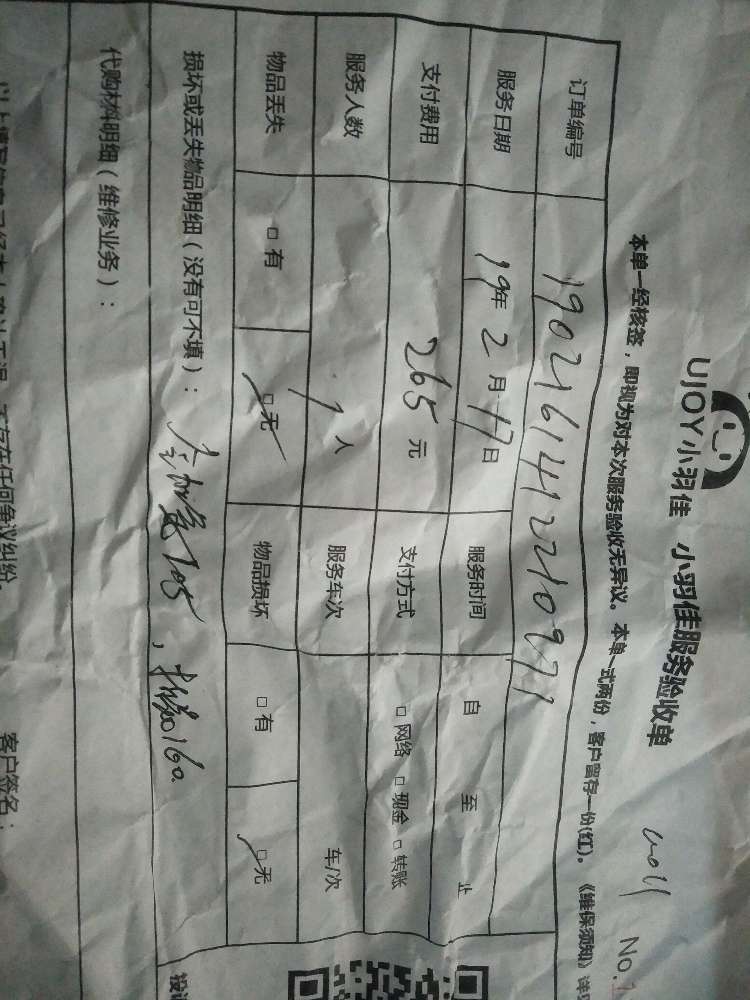 UJOY小羽佳 小羽佳服务验收单
No.
本单一经核签，即视为对本次服务验收无异议。本单一式两份，客户留存一份(红)。《维保须知》详
订单编号 1902161412210971
服务日期 19年 2月 17日 服务时间 自 至 止
支付费用 265 元 支付方式 □网络 □现金 □转账
服务人数 1 人 服务车次 车/次
物品丢失 □有 □无 物品损坏 □有 □无
损坏或丢失物品明细（没有可不填）： 105， 160
代购材料明细（维修业务）：
不存在任何争议纠纷。 客户签名：